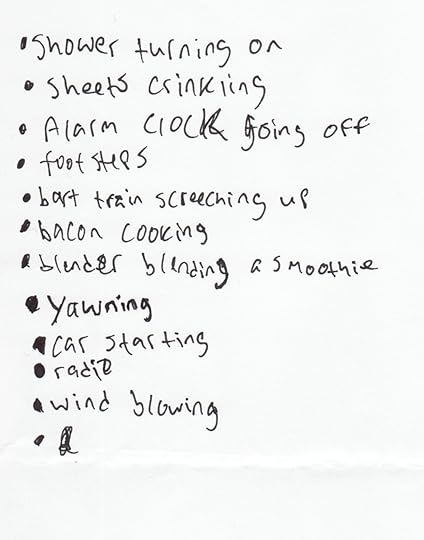 • Shower turning on
• sheets crinkling
• Alarm clock going off
• footsteps
• bart train screeching up
• bacon cooking
• blender blending a smoothie
• Yawning
• car starting
• radio
• wind blowing
•